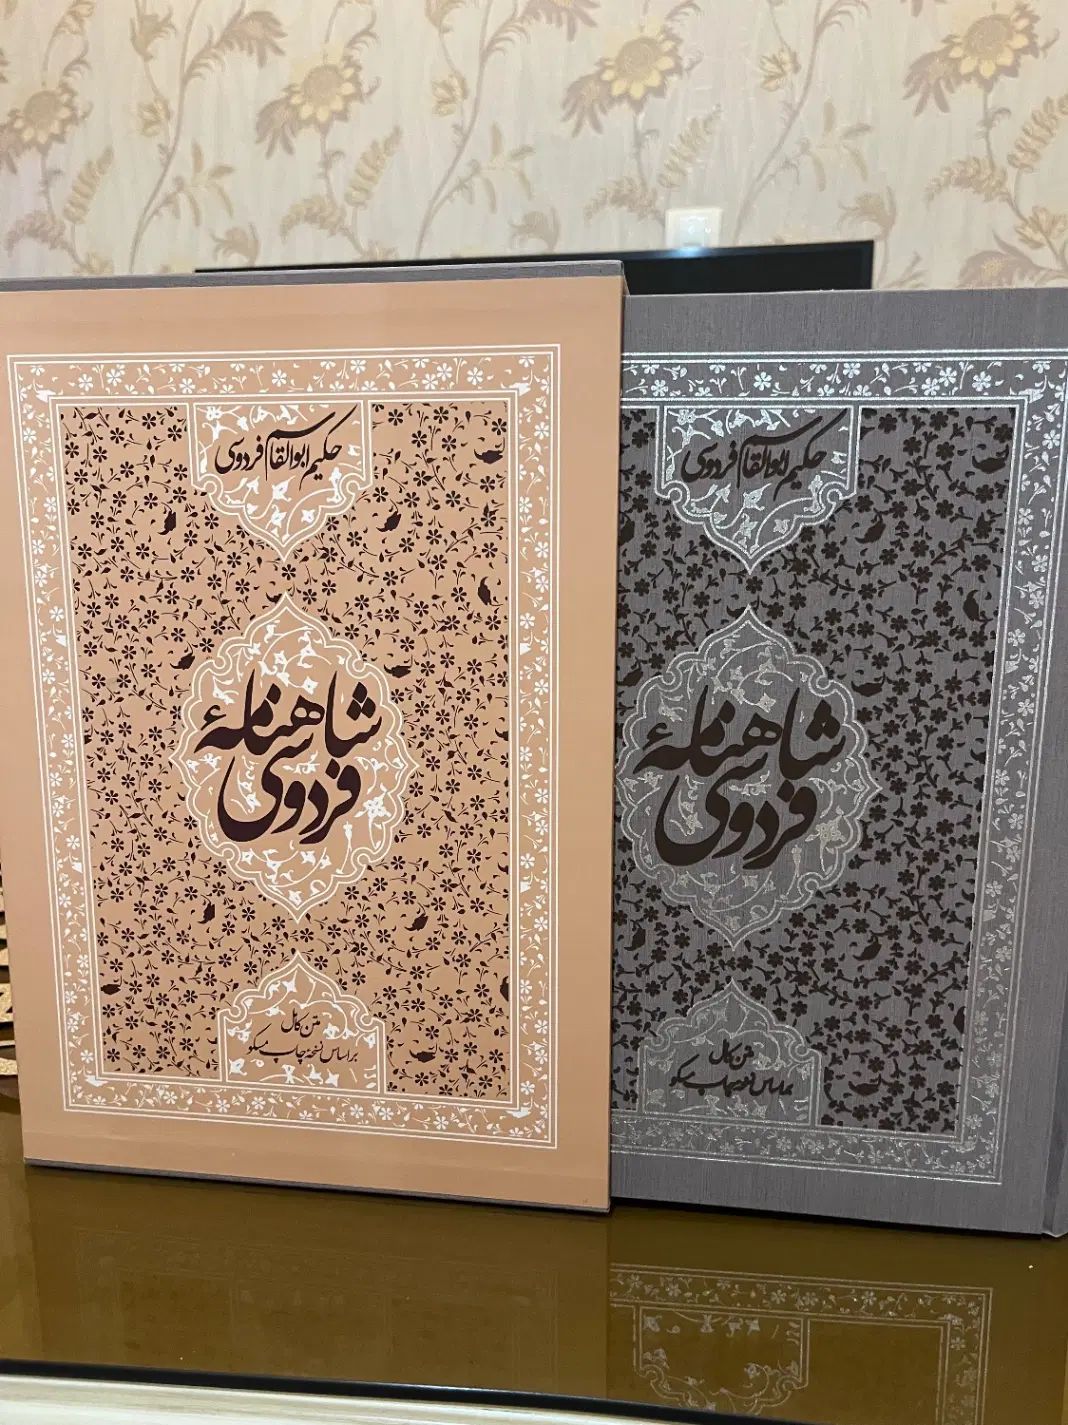 حکیم ابوالقاسم فردوسی
شاهنامهٔ
فردوسی
متن کامل
بر اساس نسخهٔ چاپ مسکو
حکیم ابوالقاسم فردوسی
شاهنامهٔ
فردوسی
متن کامل
بر اساس نسخهٔ چاپ مسکو